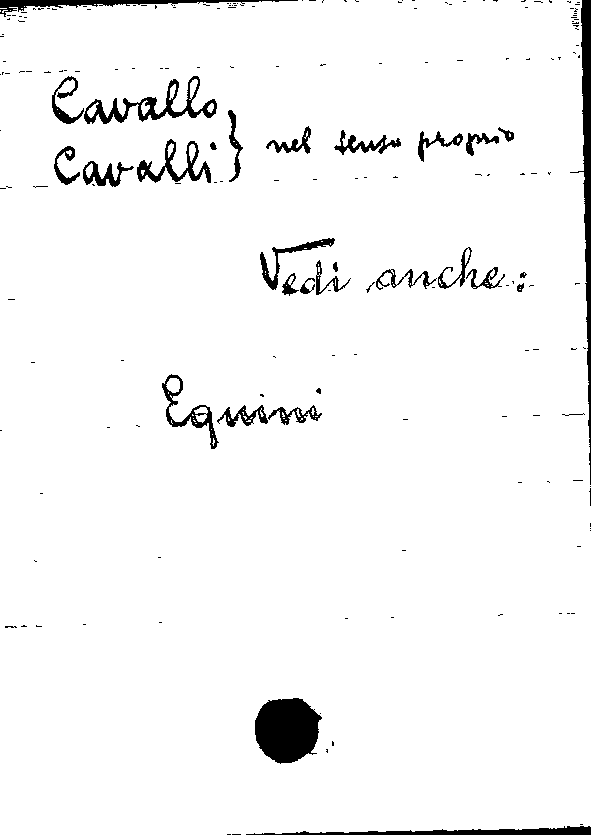 Cavallo,
Cavalli } nel senso proprio
Vedi anche:
Equini